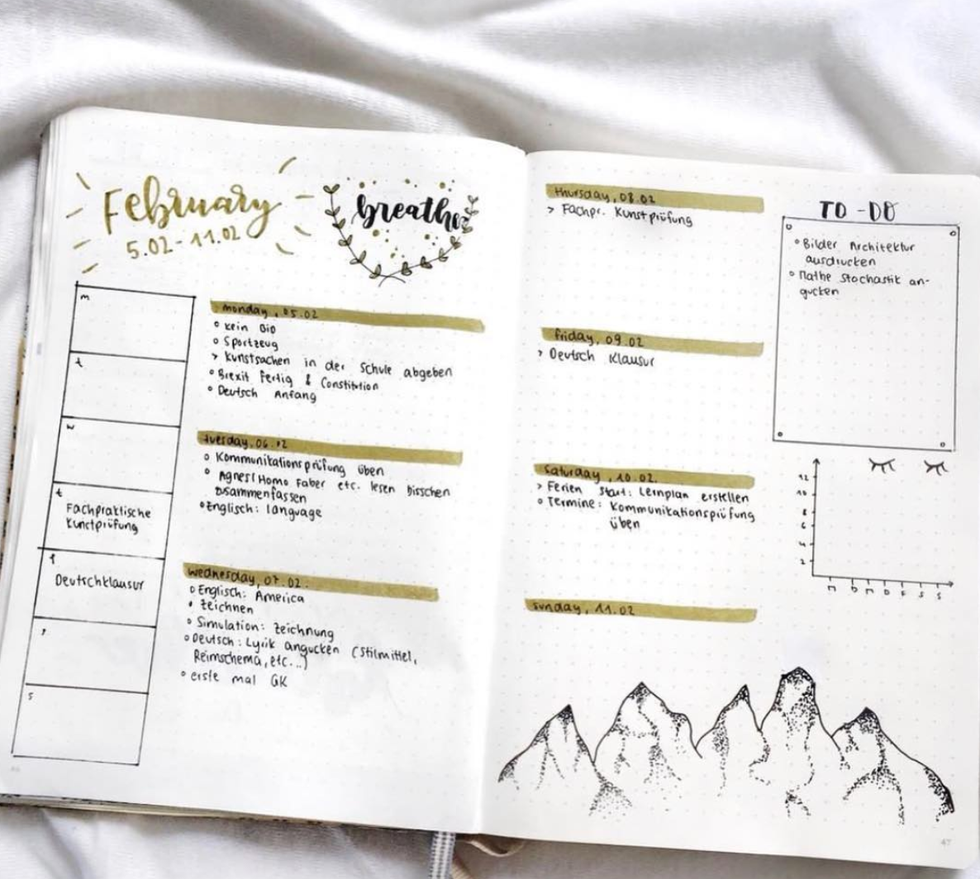 February
5.02-11.02
breathe
m
t
w
t
Fachpraktische
Kunstprüfung
f
Deutschklausur
s
s
monday, 05.02
° Kein Bio
° Sportzeug
> Kunstsachen in der Schule abgeben
° Brexit Fertig & Constitution
° Deutsch Anfang
tuesday, 06.02
° Kommunikationsprüfung üben
° Agnes/Homo Faber etc. lesen bisschen
zusammenfassen
° Englisch: language
wednesday, 07.02.
° Englisch: America
° zeichnen
° Simulation: zeichnung
° Deutsch: Lyrik angucken (Stilmittel,
Reimschema, etc...)
° erste mal GK
thursday, 08.02
> Fachpr. Kunstprüfung
friday, 09.02
> Deutsch Klausur
saturday, 10.02.
> Ferien Start: Lernplan erstellen
° Termine: Kommunikationsprüfung
üben
sunday, 11.02
TO-DO
° Bilder Architektur
ausdrucken
° Mathe Stochastik an-
gucken
12
10
8
6
4
2
m m D F S S
47